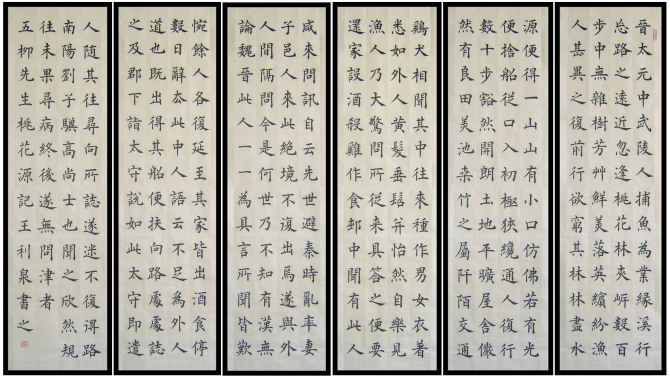 晉太元中武陵人捕魚為業緣溪行
忘路之遠近忽逢桃花林夾岸數百
步中無雜樹芳草鮮美落英繽紛漁
人甚異之復前行欲窮其林林盡水
源便得一山山有小口仿佛若有光
便捨船從口入初極狹纔通人復行
數十步豁然開朗土地平曠屋舍儼
然有良田美池桑竹之屬阡陌交通
鷄犬相聞其中往來種作男女衣著
悉如外人黃髮垂髫并怡然自樂見
漁人乃大驚問所從來具答之便要
還家設酒殺雞作食邨中聞有此人
咸來問訊自云先世避秦時亂率妻
子邑人來此絕境不復出焉遂與外
人間隔問今是何世乃不知有漢無
論魏晉此人一一為具言所聞皆歎
惋餘人各復延至其家皆出酒食停
數日辭去此中人語云不足為外人
道也既出得其船便扶向路處處誌
之及郡下詣太守說如此太守即遣
人隨其往尋向所誌遂迷不復得路
南陽劉子驥高尚士也聞之欣然規
往未果尋病終後遂無問津者
五柳先生桃花源記王利泉書之